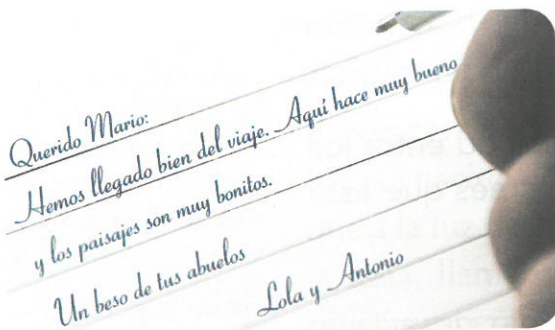 Querido Mario:
Hemos llegado bien del viaje. Aquí hace muy bueno
y los paisajes son muy bonitos.
Un beso de tus abuelos
Lola y Antonio